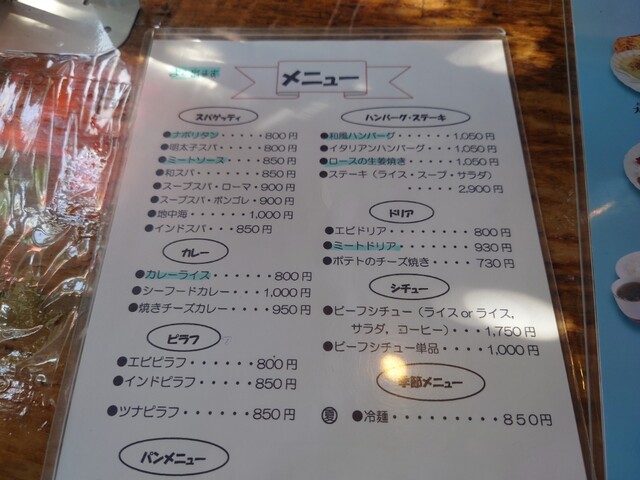 メニュー
スパゲッティ
●ナポリタン・・・・・800円
●明太子スパ・・・・・800円
●ミートソース・・・・850円
●和スパ・・・・・・・850円
●スープスパ・ローマ・900円
●スープスパ・ボンゴレ・900円
●地中海・・・・・1,000円
●インドスパ・・850円
カレー
●カレーライス・・・・・800円
●シーフードカレー・・・1,000円
●焼きチーズカレー・・・950円
ピラフ
●エビピラフ・・・・・800円
●インドピラフ・・・・850円
●ツナピラフ・・・・・850円
パンメニュー
ハンバーグ・ステーキ
●和風ハンバーグ・・・・1,050円
●イタリアンハンバーグ・・1,050円
●ロースの生姜焼き・・・1,050円
●ステーキ（ライス・スープ・サラダ）
・・・・・2,900円
ドリア
●エビドリア・・・・・・800円
●ミートドリア・・・・・930円
●ポテトのチーズ焼き・・・730円
シチュー
●ビーフシチュー（ライスorライス，
サラダ，コーヒー）・・・1,750円
●ビーフシチュー単品・・・1,000円
季節メニュー
夏 ●冷麺・・・・・・・・・850円